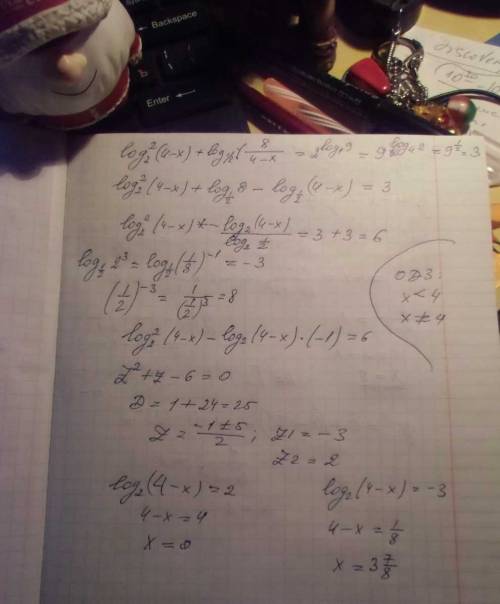 Backspace
Enter
Ъ
log₂²(4-x) + log_{1/2} 8/(4-x) = 2^{log₄9} = 9^{log₄2} = 9^{1/2} = 3
log₂²(4-x) + log_{1/2} 8 - log_{1/2}(4-x) = 3
log₂²(4-x) - log₂(4-x)/log₂ 1/2 = 3 + 3 = 6
log_{1/2} 2³ = log_{1/2}(1/8)⁻¹ = -3
(1/2)⁻³ = 1/(1/2)³ = 8
ОДЗ:
x < 4
x ≠ 4
log₂²(4-x) - log₂(4-x)·(-1) = 6
Z² + Z - 6 = 0
D = 1 + 24 = 25
Z = (-1 ± 5)/2 ; Z1 = -3
Z2 = 2
log₂(4-x) = 2
4-x = 4
x = 0
log₂(4-x) = -3
4-x = 1/8
x = 3 7/8